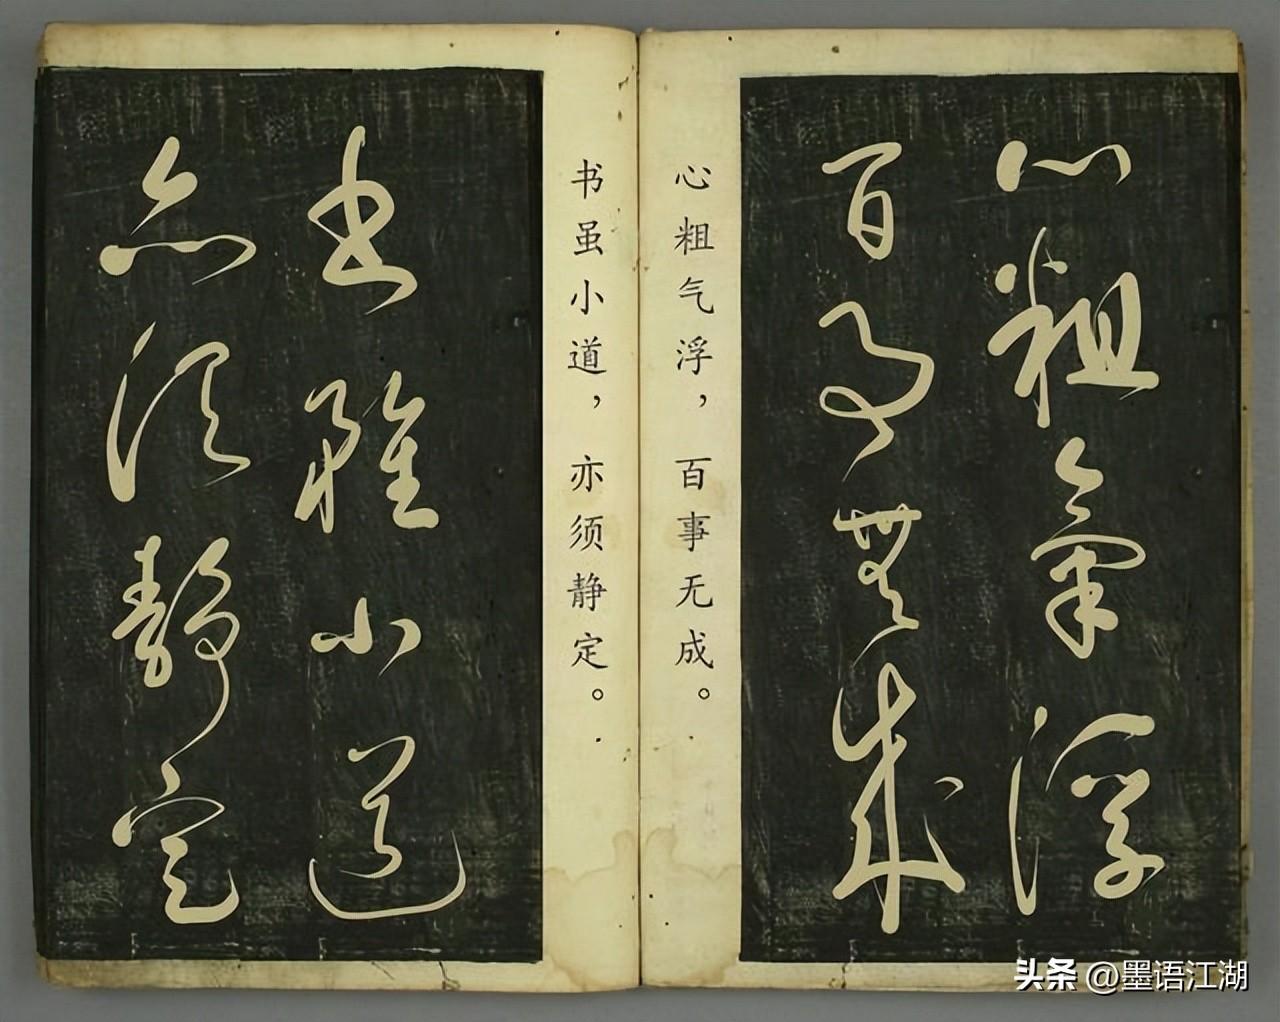 心粗氣浮
百事無成
心粗气浮，百事无成。
书虽小道，亦须静定。
書雖小道
亦須靜定
头条 @墨语江湖